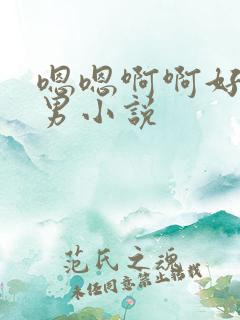 嗯嗯啊啊好
男小说
范氏之魂
未经同意禁止转载